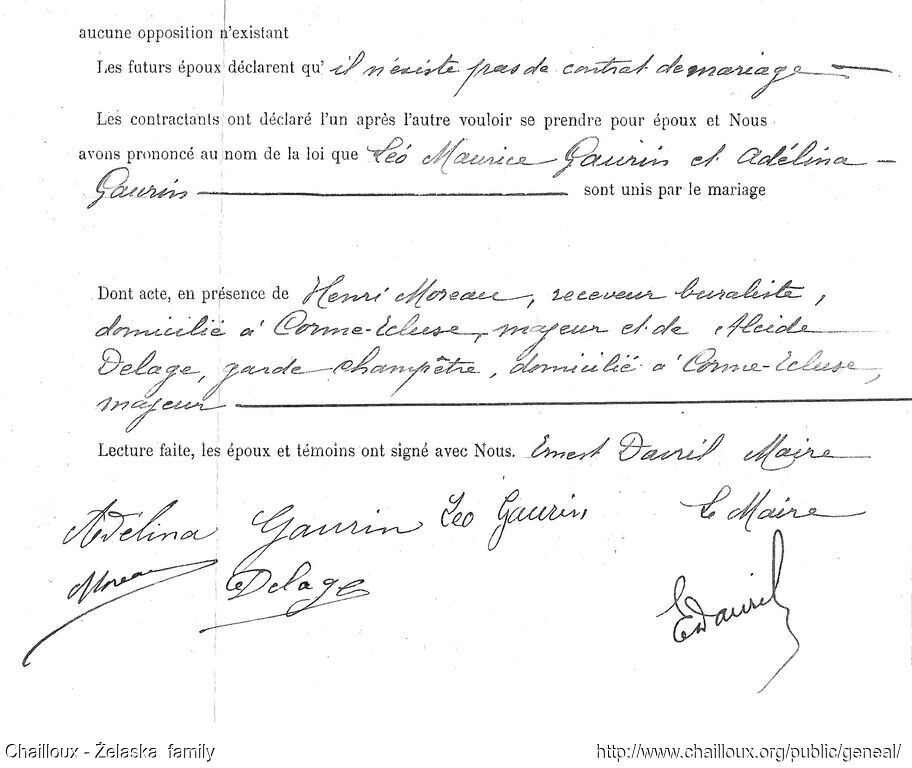 aucune opposition n'existant
Les futurs époux déclarent qu' il n'existe pas de contrat de mariage
Les contractants ont déclaré l'un après l'autre vouloir se prendre pour époux et Nous
avons prononcé au nom de la loi que Léo Maurice Gaurin et Adélina
Gaurin sont unis par le mariage
Dont acte, en présence de Henri Moreau, receveur buraliste,
domicilié à Corme-Ecluse, majeur et de Alcide
Delage, garde champêtre, domicilié à Corme-Ecluse,
majeur
Lecture faite, les époux et témoins ont signé avec Nous. Ernest Dauril Maire
Adélina Gaurin Leo Gaurin Le Maire
Moreau Delage EDauril
Chailloux - Żelaska family http://www.chailloux.org/public/geneal/